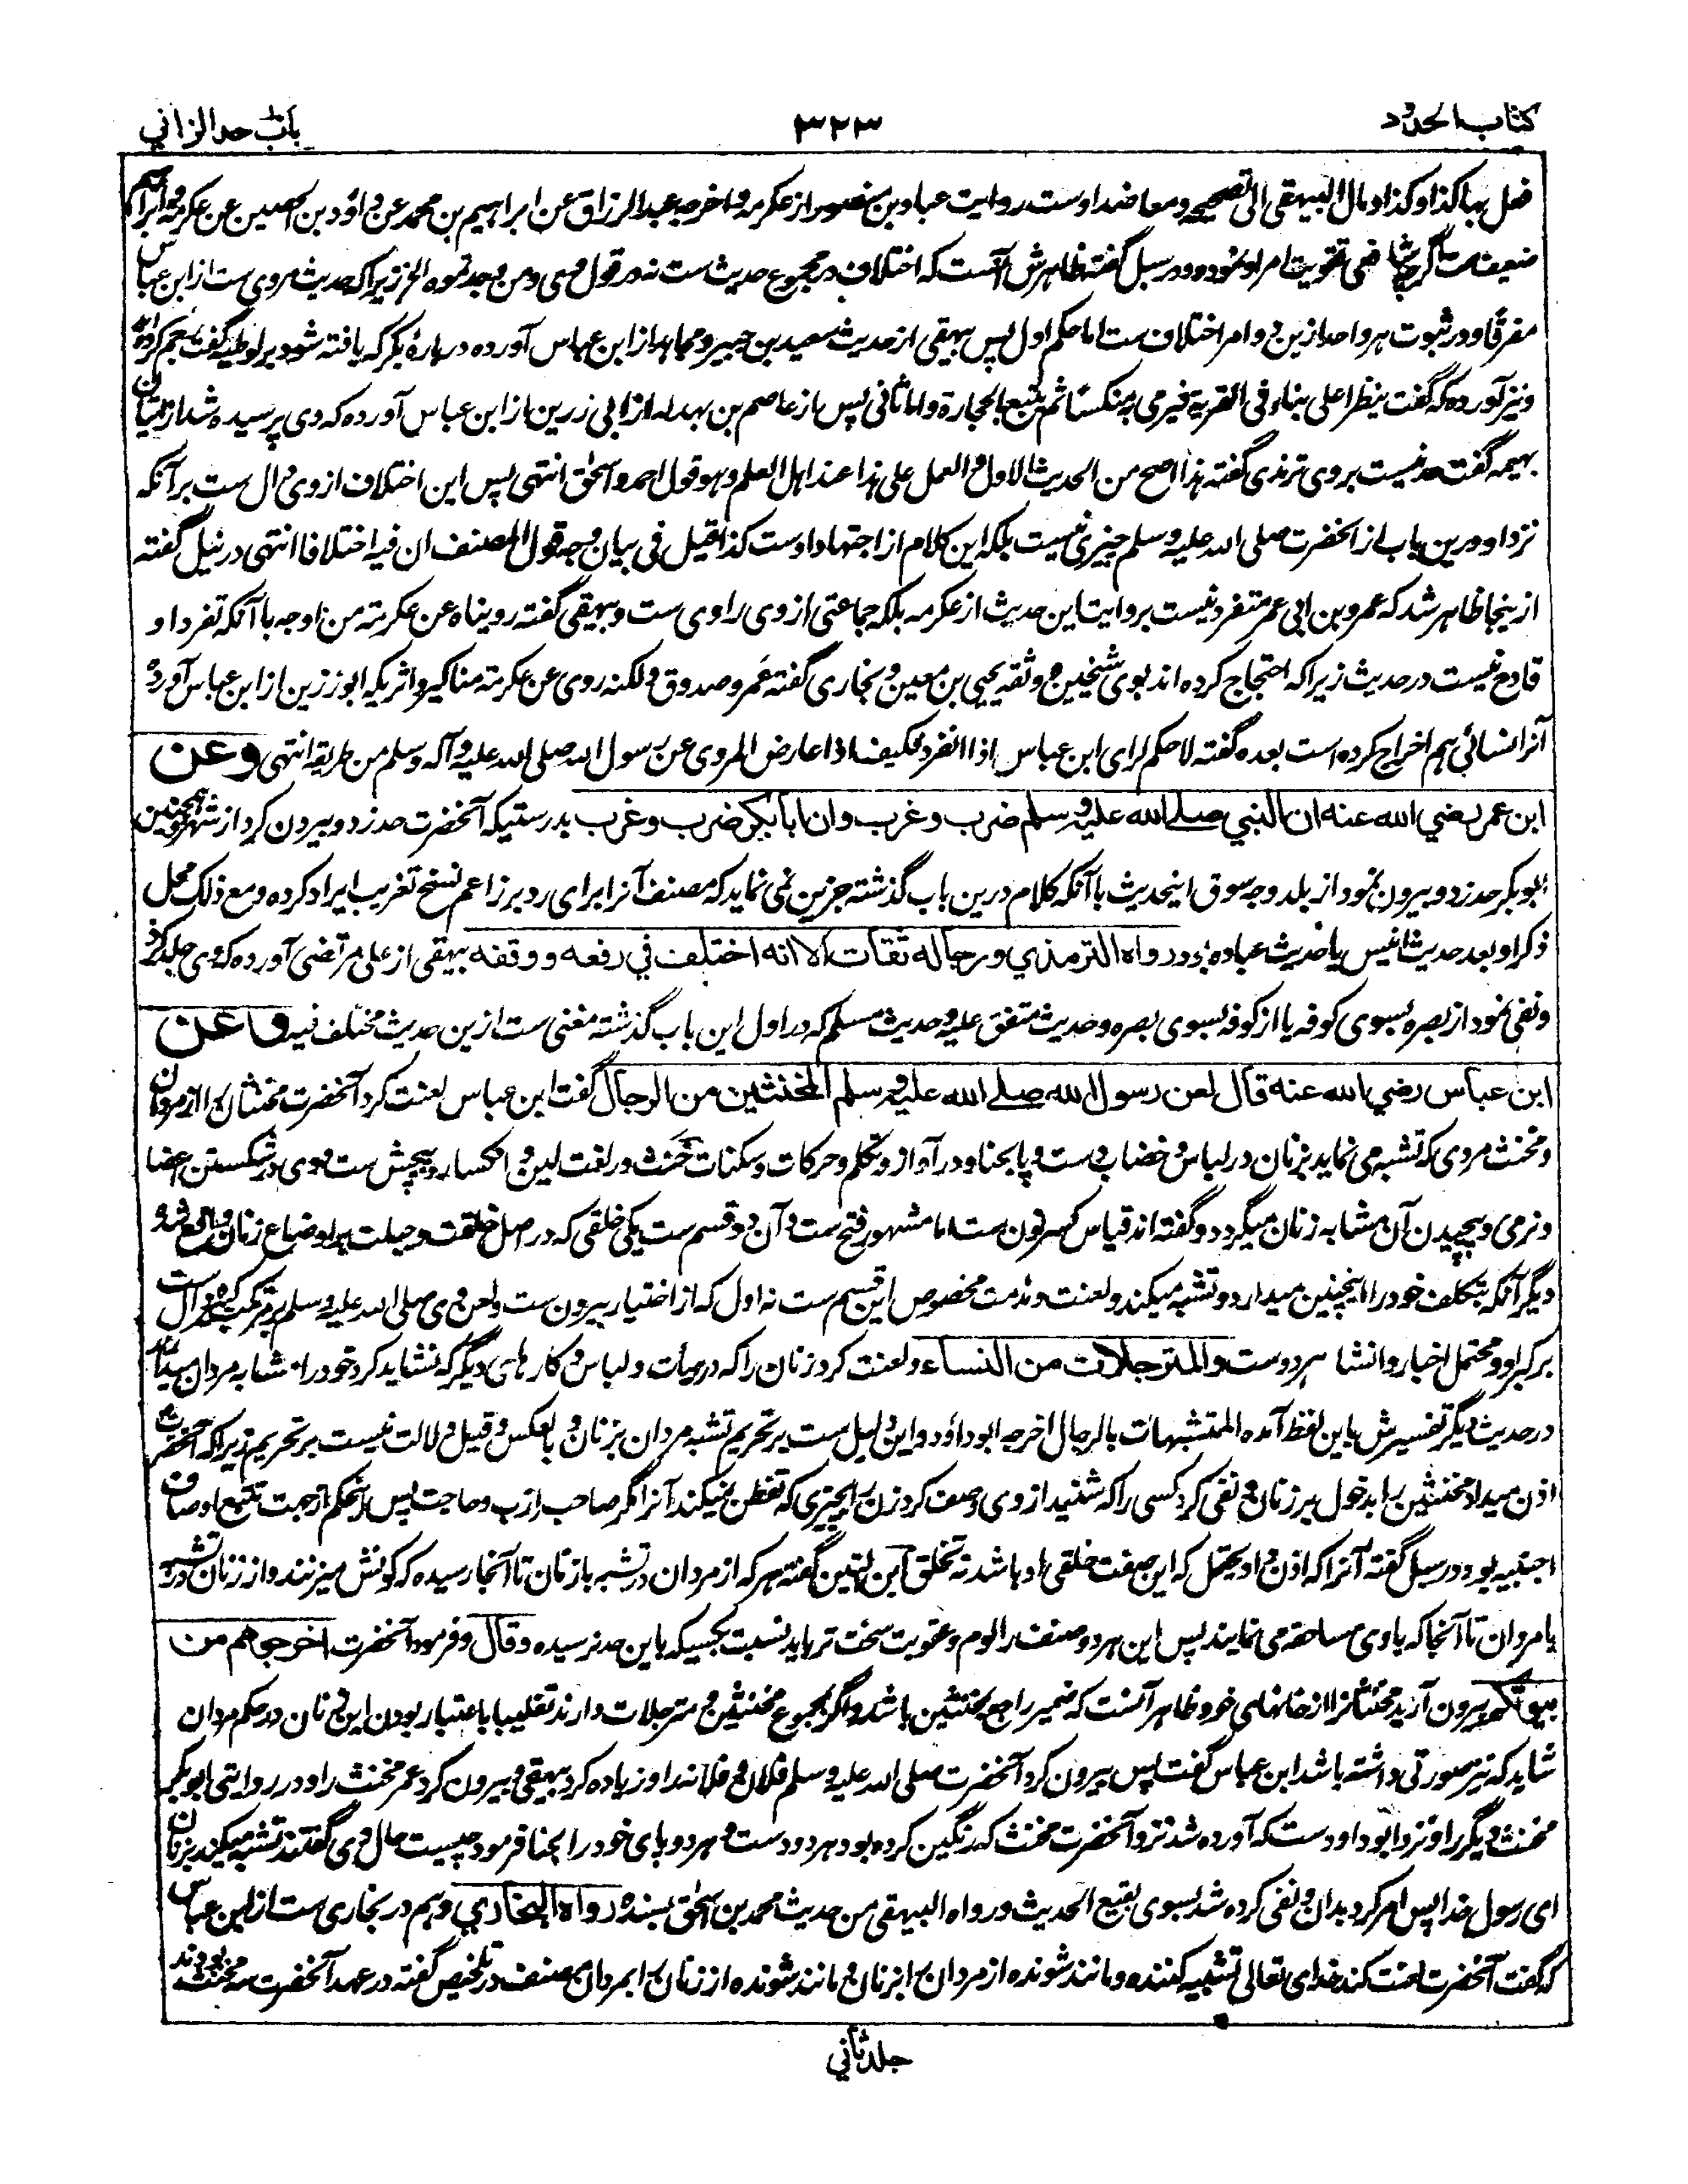 کتاب الحدود
۳۲۳
باب حد الزاني
فعل بها کذا وکذا ومال البیهقی الی تصحیحه ومعاضد اوست روایت عباد بن منصور از عکرمه واخرجه عبد الرزاق عن ابراهیم بن محمد عن داؤد بن الحصین عن عکرمة وابراهیم
ضعیف ست اگرچه شافعی تقویت امر او نموده ودر سبل گفته ظاهرش آنست که اختلاف در مجموع حدیث ست نه در قول وی ومن وجدتموه الخ زیراکه حدیث مروی ست از ابن عباس
مفرقا ودر ثبوت هر واحد ازین دو امر اختلاف ست اما حکم اول پس بیهقی از حدیث سعید بن جبیر ومجاهد از ابن عباس آورده در بارهٔ بکر که یافته شود بر لوطیه گفت رجم کرده آید
ونیز آورده که گفت ینظر اعلی بناء فی القریة فیرمی به منکسا ثم یتبع الحجارة واما ثانی پس از عاصم بن بهدله از ابی رزین از ابن عباس آورده که وی پرسیده شد از اتیان
بهیمه گفت حد نیست بر وی ترمذی گفته هذا اصح من الحدیث الاول والعمل علی هذا عند اهل العلم وهو قول احمد واسحٰق انتهی پس این اختلاف از وی دال ست بر آنکه
نزد او درین باب از آنحضرت صلی الله علیه وسلم چیزی نیست بلکه این کلام از اجتهاد اوست کذا قیل فی بیان وجه قول المصنف ان فیه اختلافا انتهی در نیل گفته
ازینجا ظاهر شد که عمرو بن ابی عمر متفرد نیست بروایت این حدیث از عکرمه بلکه جماعتی از وی راوی ست وبیهقی گفته رویناه عن عکرمة من اوجه با آنکه تفرد او
قادح نیست در حدیث زیراکه احتجاج کرده اند بوی شیخین ووثقه یحیی بن معین وبخاری گفته عمرو صدوق ولکنه روی عن عکرمة مناکیر واثریکه ابو رزین از ابن عباس آورده
آنرا نسائی هم اخراج کرده است بعده گفته لا حکم لرای ابن عباس اذا انفرد فکیف اذا عارض المروی عن رسول الله صلی الله علیه وآله وسلم من طریقه انتهی وعن
ابن عمر رضي الله عنه ان النبي صلے الله علیه وسلم ضرب وغرب وان ابا بکر ضرب وغرب بدرستیکه آنحضرت حد زد وبیرون کرد از شهر وهمچنین
ابو بکر حد زد وبیرون نمود از بلد وجه سوق اینحدیث با آنکه کلام درین باب گذشته جز این نمی نماید که مصنف آنرا برای رد بر زاعم نسخ تغریب ایراد کرده ومع ذلک محل
ذکر او بعد حدیث انیس یا حدیث عباده بود رواه الترمذي ورجاله ثقات الا انه اختلف في رفعه ووقفه بیهقی از علی مرتضی آورده که وی جلد کرد
ونفی نمود از بصره بسوی کوفه یا از کوفه بسوی بصره وحدیث متفق علیه وحدیث مسلم که در اول این باب گذشته مغنی ست ازین حدیث مختلف فیه وعن
ابن عباس رضي الله عنه قال لعن رسول الله صلے الله علیه وسلم المخنثین من الرجال گفت ابن عباس لعنت کرد آنحضرت مخنثان را از مردان
ومخنث مردی که تشبه می نماید بزنان در لباس وخضاب دست وپا بحنا ودر آواز وتکلم وحرکات وسکنات خنث در لغت لین وانکسار وپیچش ست ووی در شکستن اعضا
ونرمی وپیچیدن آن مشابه زنان میگردد وگفته اند قیاس کسر نون ست اما مشهور فتح ست وآن دو قسم ست یکی خلقی که در اصل خلقت وجبلت بر اوضاع زنان واقع شود
دیگر آنکه بتکلف خود را اینچنین میدارد وتشبه میکند ولعنت ومذمت مخصوص این قسم ست نه اول که از اختیار بیرون ست ولعن وی صلی الله علیه وسلم بر مرتکب گناه دال ست
بر کبر او ومحتمل اخبار وانشا هر دوست والمترجلات من النساء ولعنت کرد زنان را که در هیأت ولباس وکارهای دیگر که نشاید کرد خود را مشابه مردان میسازند
در حدیث دیگر تفسیرش باین لفظ آمده المتشبهات بالرجال اخرجه ابو داؤد واین دلیل ست بر تحریم تشبه مردان بزنان وبالعکس وقیل دلالت نیست بر تحریم زیراکه آنحضرت
اذن میداد مخنثین را بدخول بر زنان ونفی کرد کسی را که شنید از وی وصف کرد زن را بچیزی که تفطن نمیکند آنرا مگر صاحب ارب وحاجت پس این حکم از جهت تتبع اوصاف
اجنبیه بود ودر سبل گفته آنرا که اذن داد یحتمل که این صفت خلقی او باشد نه تخلق ابن التین گفته هر که از مردان در تشبه با زنان تا آنجا رسیده که کونش میزنند واز زنان در تشبه
با مردان تا آنجا که با وی مساحقه می نمایند پس این هر دو صنف را لوم وعقوبت سخت تر باید نسبت بکسیکه باین حد نرسیده وقال وفرمود آنحضرت اخرجوهم من
بیوتکم بیرون آرید مخنثانرا از خانهای خود وظاهر آنست که ضمیر راجع بمخنثین باشد واگر بمجموع مخنثین ومترجلات دارند تغلیبا باعتبار بودن این زنان در حکم مردان
شاید که نیز صورتی داشته باشد ابن عباس گفت پس بیرون کرد آنحضرت صلی الله علیه وسلم فلان وفلانرا وزیاده کرد بیهقی وبیرون کرد عمر مخنث را ودر روایتی ابو بکر
مخنث دیگر را ونزد ابو داودست که آورده شد نزد آنحضرت مخنث که رنگین کرده بود هر دو دست وهر دو پای خود را بحنا فرمود چیست حال وی گفتند تشبه میکند بزنان
ای رسول خدا پس امر کرد بدان ونفی کرده شد بسوی بقیع الحدیث ورواه البیهقی من حدیث محمد بن اسحٰق بسنده رواه البخاري وهم در بخاری ست از ابن عباس
که گفت آنحضرت لعنت کند خدای تعالی تشبیه کننده ومانند شونده از مردان را بزنان ومانند شونده از زنان را بمردان مصنف در تلخیص گفته در عهد آنحضرت سه مخنث بودند
جلد ثاني